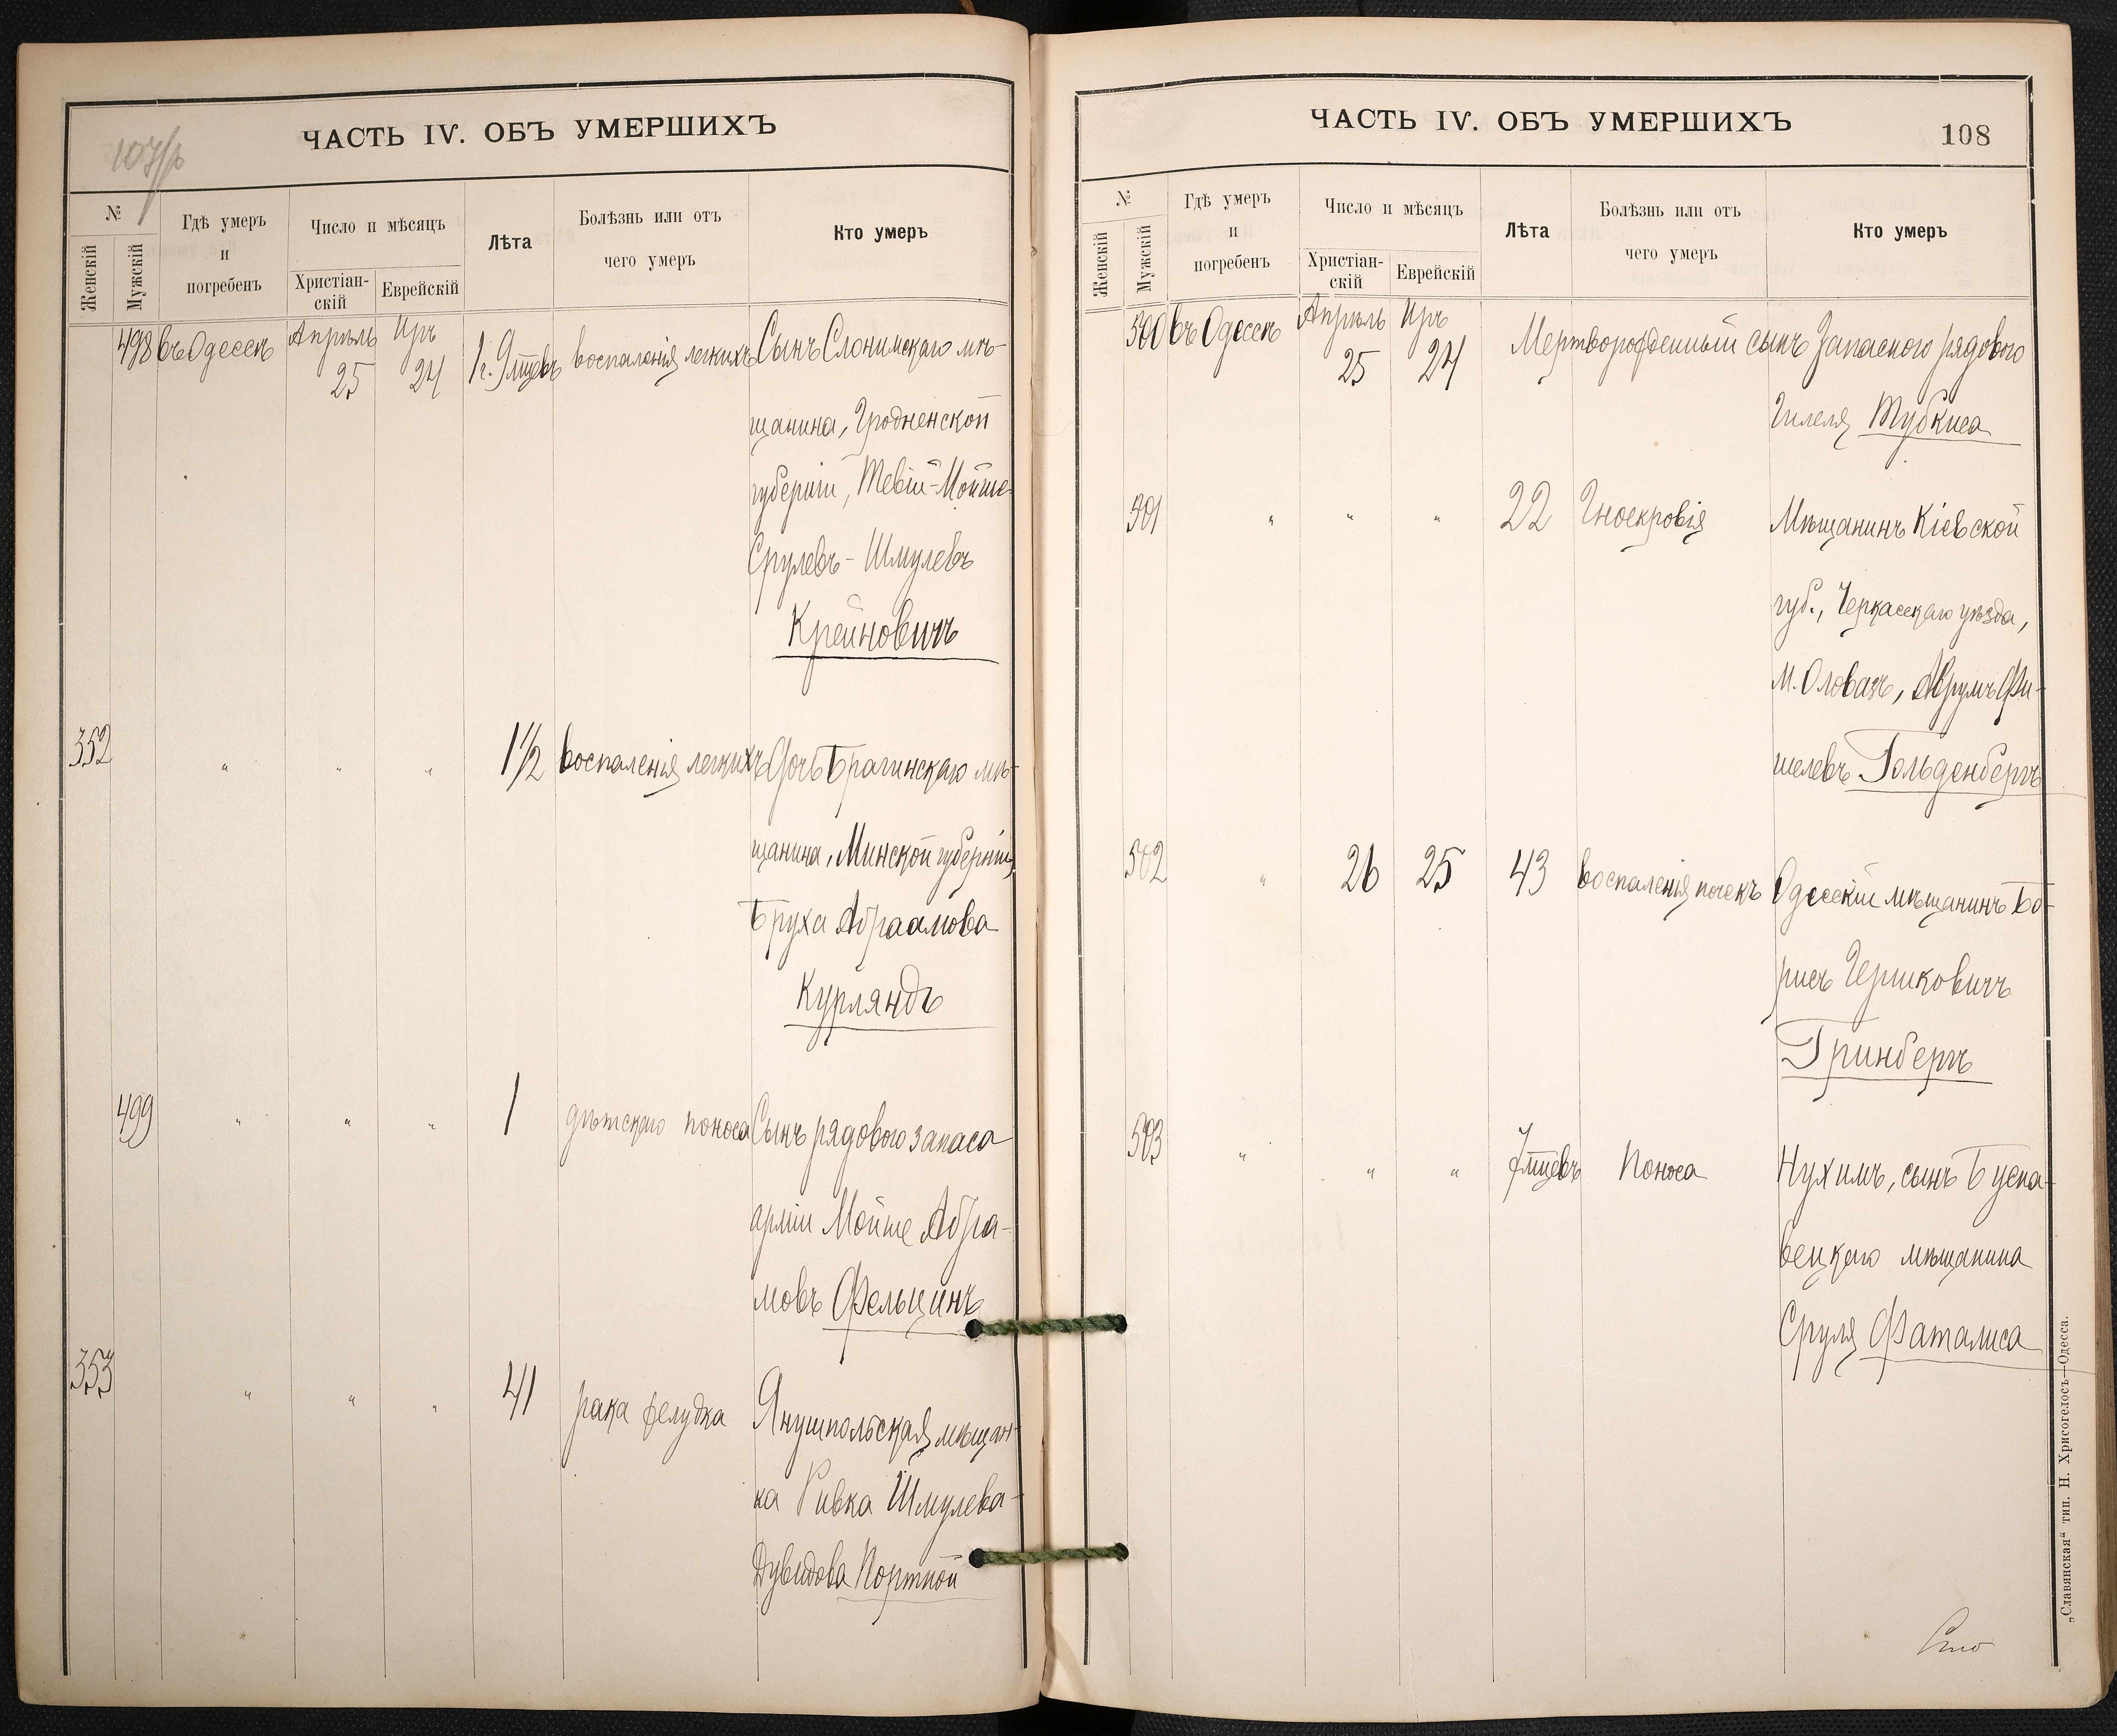 107/р
ЧАСТЬ IV. ОБЪ УМЕРШИХЪ
№
Женскій
Мужскій
Гдѣ умеръ
и
погребенъ
Число и мѣсяцъ
Христіан-
скій
Еврейскій
Лѣта
Болѣзнь или отъ
чего умеръ
Кто умеръ
498 въ Одессѣ Апрѣль Иръ 1 г. 9 мцевъ воспаленія легкихъ Сынъ Слонимскаго мѣ-
25 24
щанина, Гродненской
губерніи, Тевій-Мойше
Срулевъ-Шмулевъ
Крейновичъ
352 " " " 1½ воспаленія легкихъ Дочь Брагинскаго мѣ-
щанина, Минской губерніи,
Бруха Абраамова
Курляндъ
499 " " " 1 дѣтскаго поноса Сынъ рядового запаса
арміи Мойше Абра-
мовъ Фельцинъ
353 " " " 41 рака желудка Янушпольская мѣщан-
ка Ривка Шмулева-
Дувидова Портной
ЧАСТЬ IV. ОБЪ УМЕРШИХЪ
108
№
Женскій
Мужскій
Гдѣ умеръ
и
погребенъ
Число и мѣсяцъ
Христіан-
скій
Еврейскій
Лѣта
Болѣзнь или отъ
чего умеръ
Кто умеръ
500 въ Одессѣ Апрѣль Иръ Мертворожденный сынъ Запасного рядового
25 24
Гилеля Тубкиса
501 " " " 22 Гноекровія Мѣщанинъ Кіевской
губ., Черкасскаго уѣзда,
м. Аврумъ Фи-
шелевъ Гольденбергъ
502 " 26 25 43 воспаленія почекъ Одесскій мѣщанинъ Бо-
рисъ Гершковичъ
Гринбергъ
503 " " " 7 мцевъ Поноса Нухимъ, сынъ
вецкаго мѣщанина
Сруля Фаталиса
„Славянская“ тип. Н. Хрисогелосъ—Одесса.